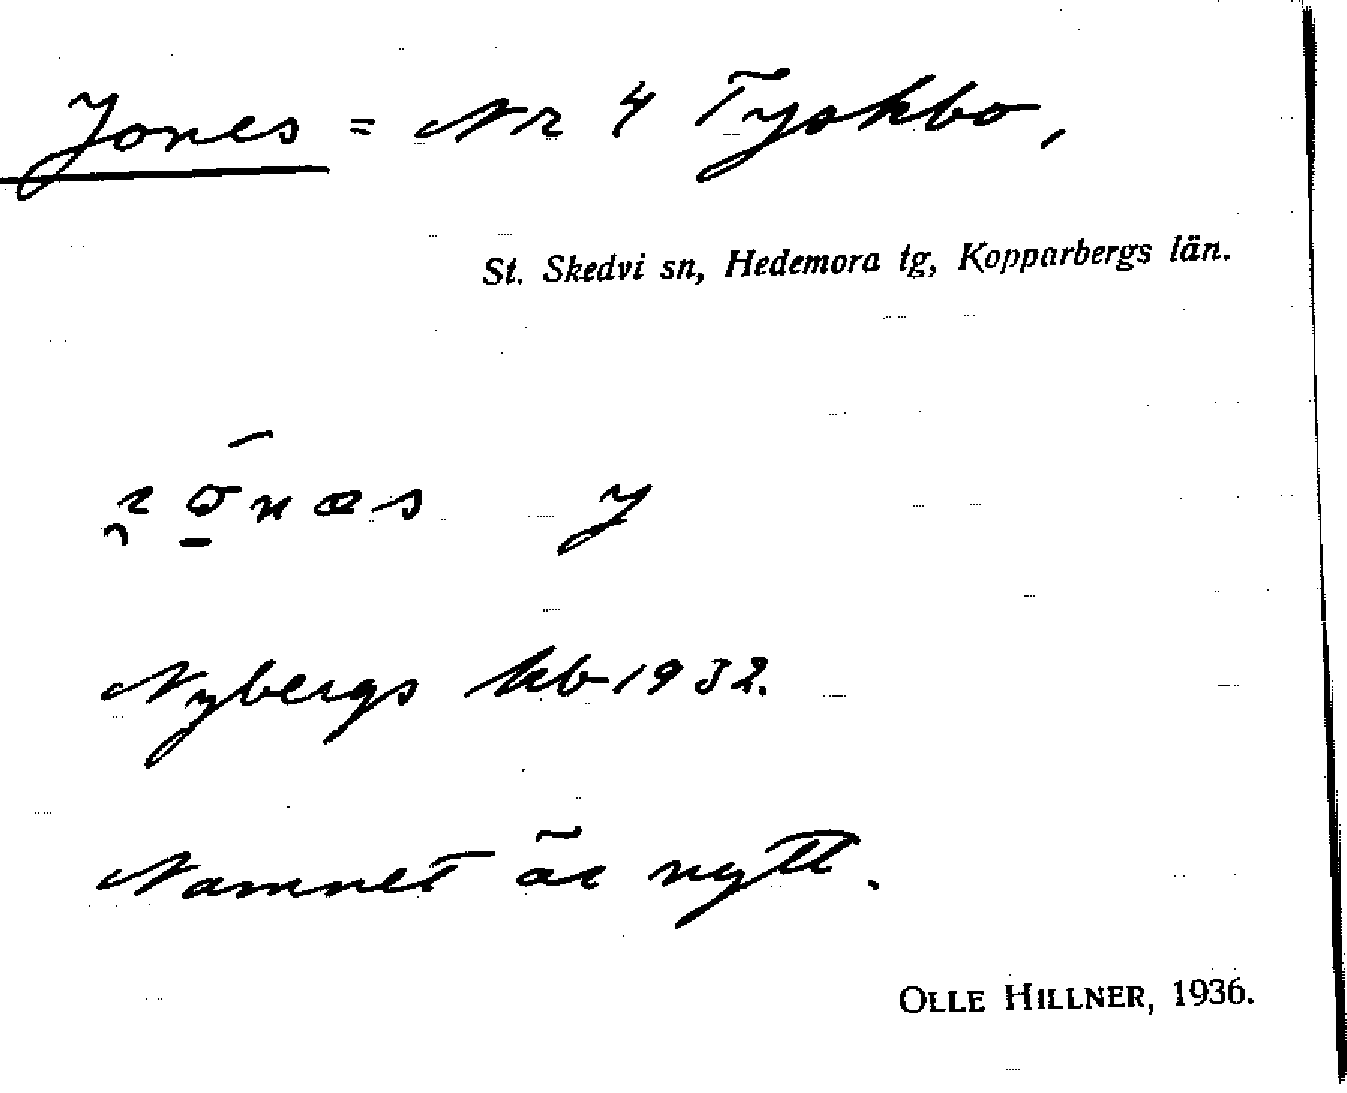 Jones = Nr 4 Tyskbo,
St. Skedvi sn, Hedemora tg, Kopparbergs län.
Nybergs kb 1932.
Namnet är nytt.
OLLE HILLNER, 1936.